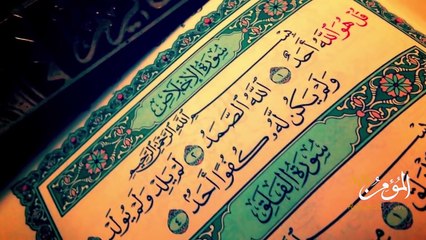 سُورَةُ الإِخْلَاصِ
ٱللَّهِ ٱلرَّحْمَٰنِ ٱلرَّحِيمِ
قُلْ هُوَ ٱللَّهُ أَحَدٌ ١ ٱللَّهُ ٱلصَّمَدُ ٢ لَمْ يَلِدْ وَلَمْ يُولَدْ
وَلَمْ يَكُن لَّهُۥ كُفُوًا أَحَدٌۢ ٤
سُورَةُ الفَلَقِ
المؤمن